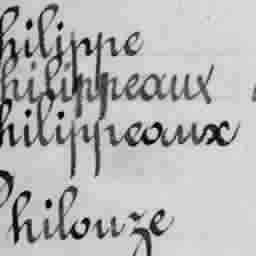 hilippe
hilippeaux
hilippeaux
Philouze